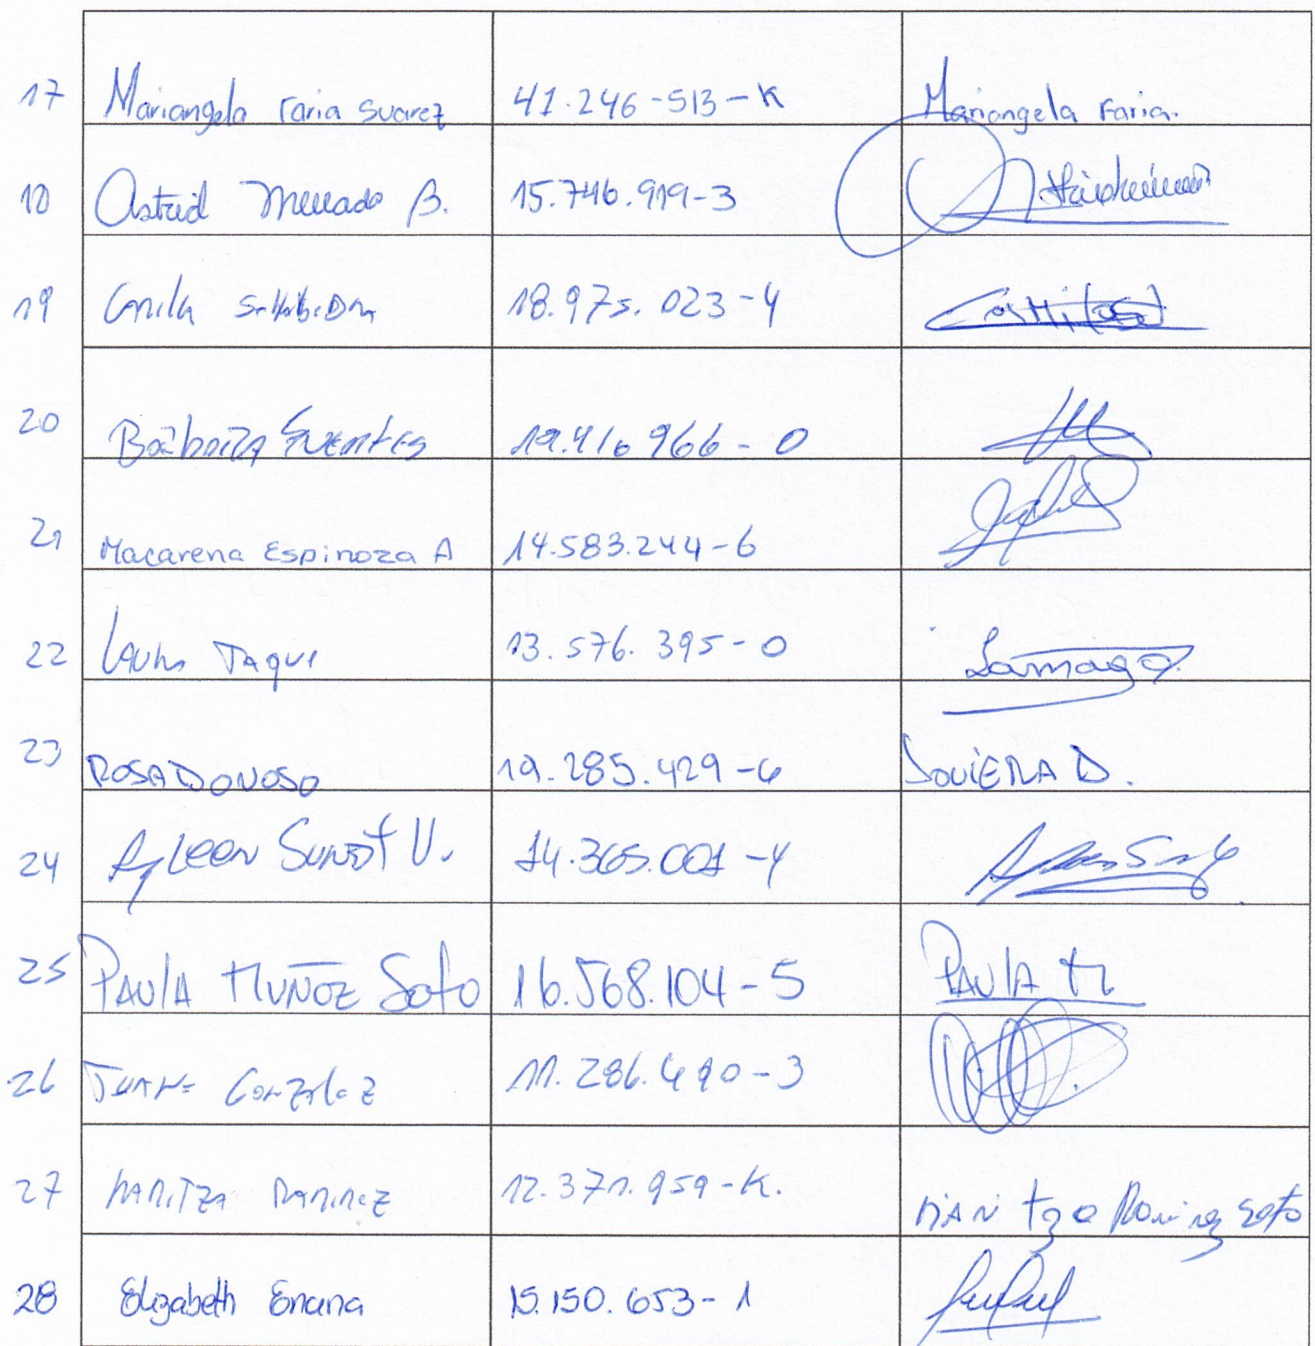 17 Mariangela Faria Suarez 41.246-513-K Mariangela Faria.
18 Astrid Mercado B. 15.746.919-3
19 Camila 18.975.023-4
20 Bárbara Fuentes 19.416 966-0
21 Macarena Espinoza A 14.583.244-6
22 Laura Jaque 13.576.395-0
23 ROSA DONOSO 19.285.429-6 JAVIERA D.
24 Ayleen Sundt V. 14.365.001-4
25 PAULA MUÑOZ Soto 16.568.104-5 PAULA M
26 Juana González 11.286.490-3
27 MARITZA RAMIREZ 12.371.959-K. MARITZA Ramirez Soto
28 Elizabeth Encina 15.150.653-1